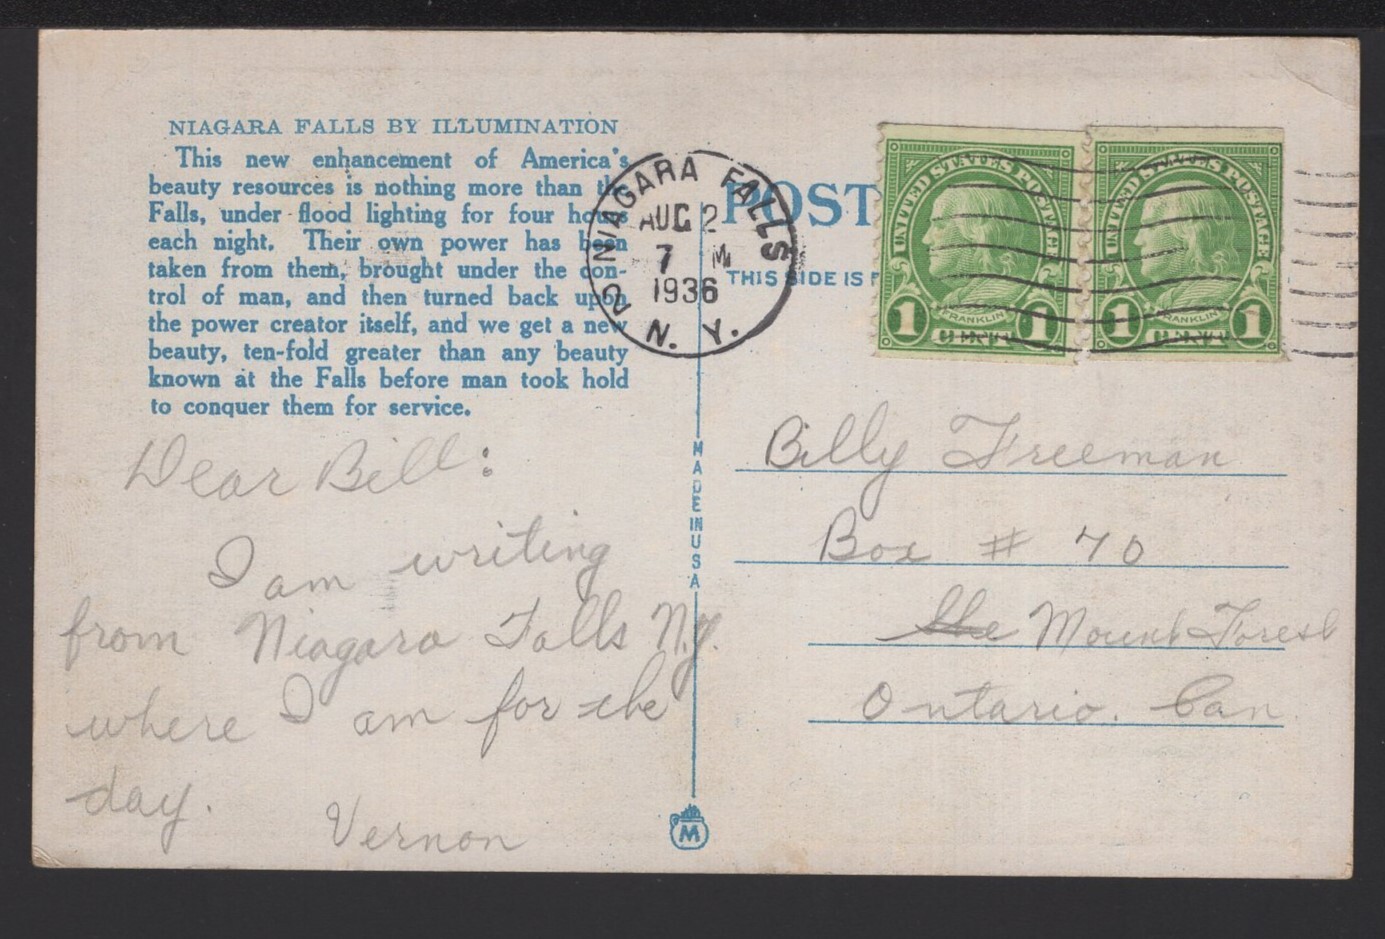 NIAGARA FALLS BY ILLUMINATION
This new enhancement of America's
beauty resources is nothing more than the
Falls, under flood lighting for four hours
each night. Their own power has been
taken from them, brought under the con-
trol of man, and then turned back upon
the power creator itself, and we get a new
beauty, ten-fold greater than any beauty
known at the Falls before man took hold
to conquer them for service.
Dear Bill:
I am writing
from Niagara Falls N.Y.
where I am for the
day.
Vernon
MADE IN USA
M
NIAGARA FALLS
AUG 2
7 M
1936
2 N. Y.
POST
THIS SIDE IS F
UNITED STATES POSTAGE
FRANKLIN
1 CENT 1
UNITED STATES POSTAGE
FRANKLIN
1 CENT 1
Billy Freeman
Box # 70
the Mount Forest
Ontario. Can